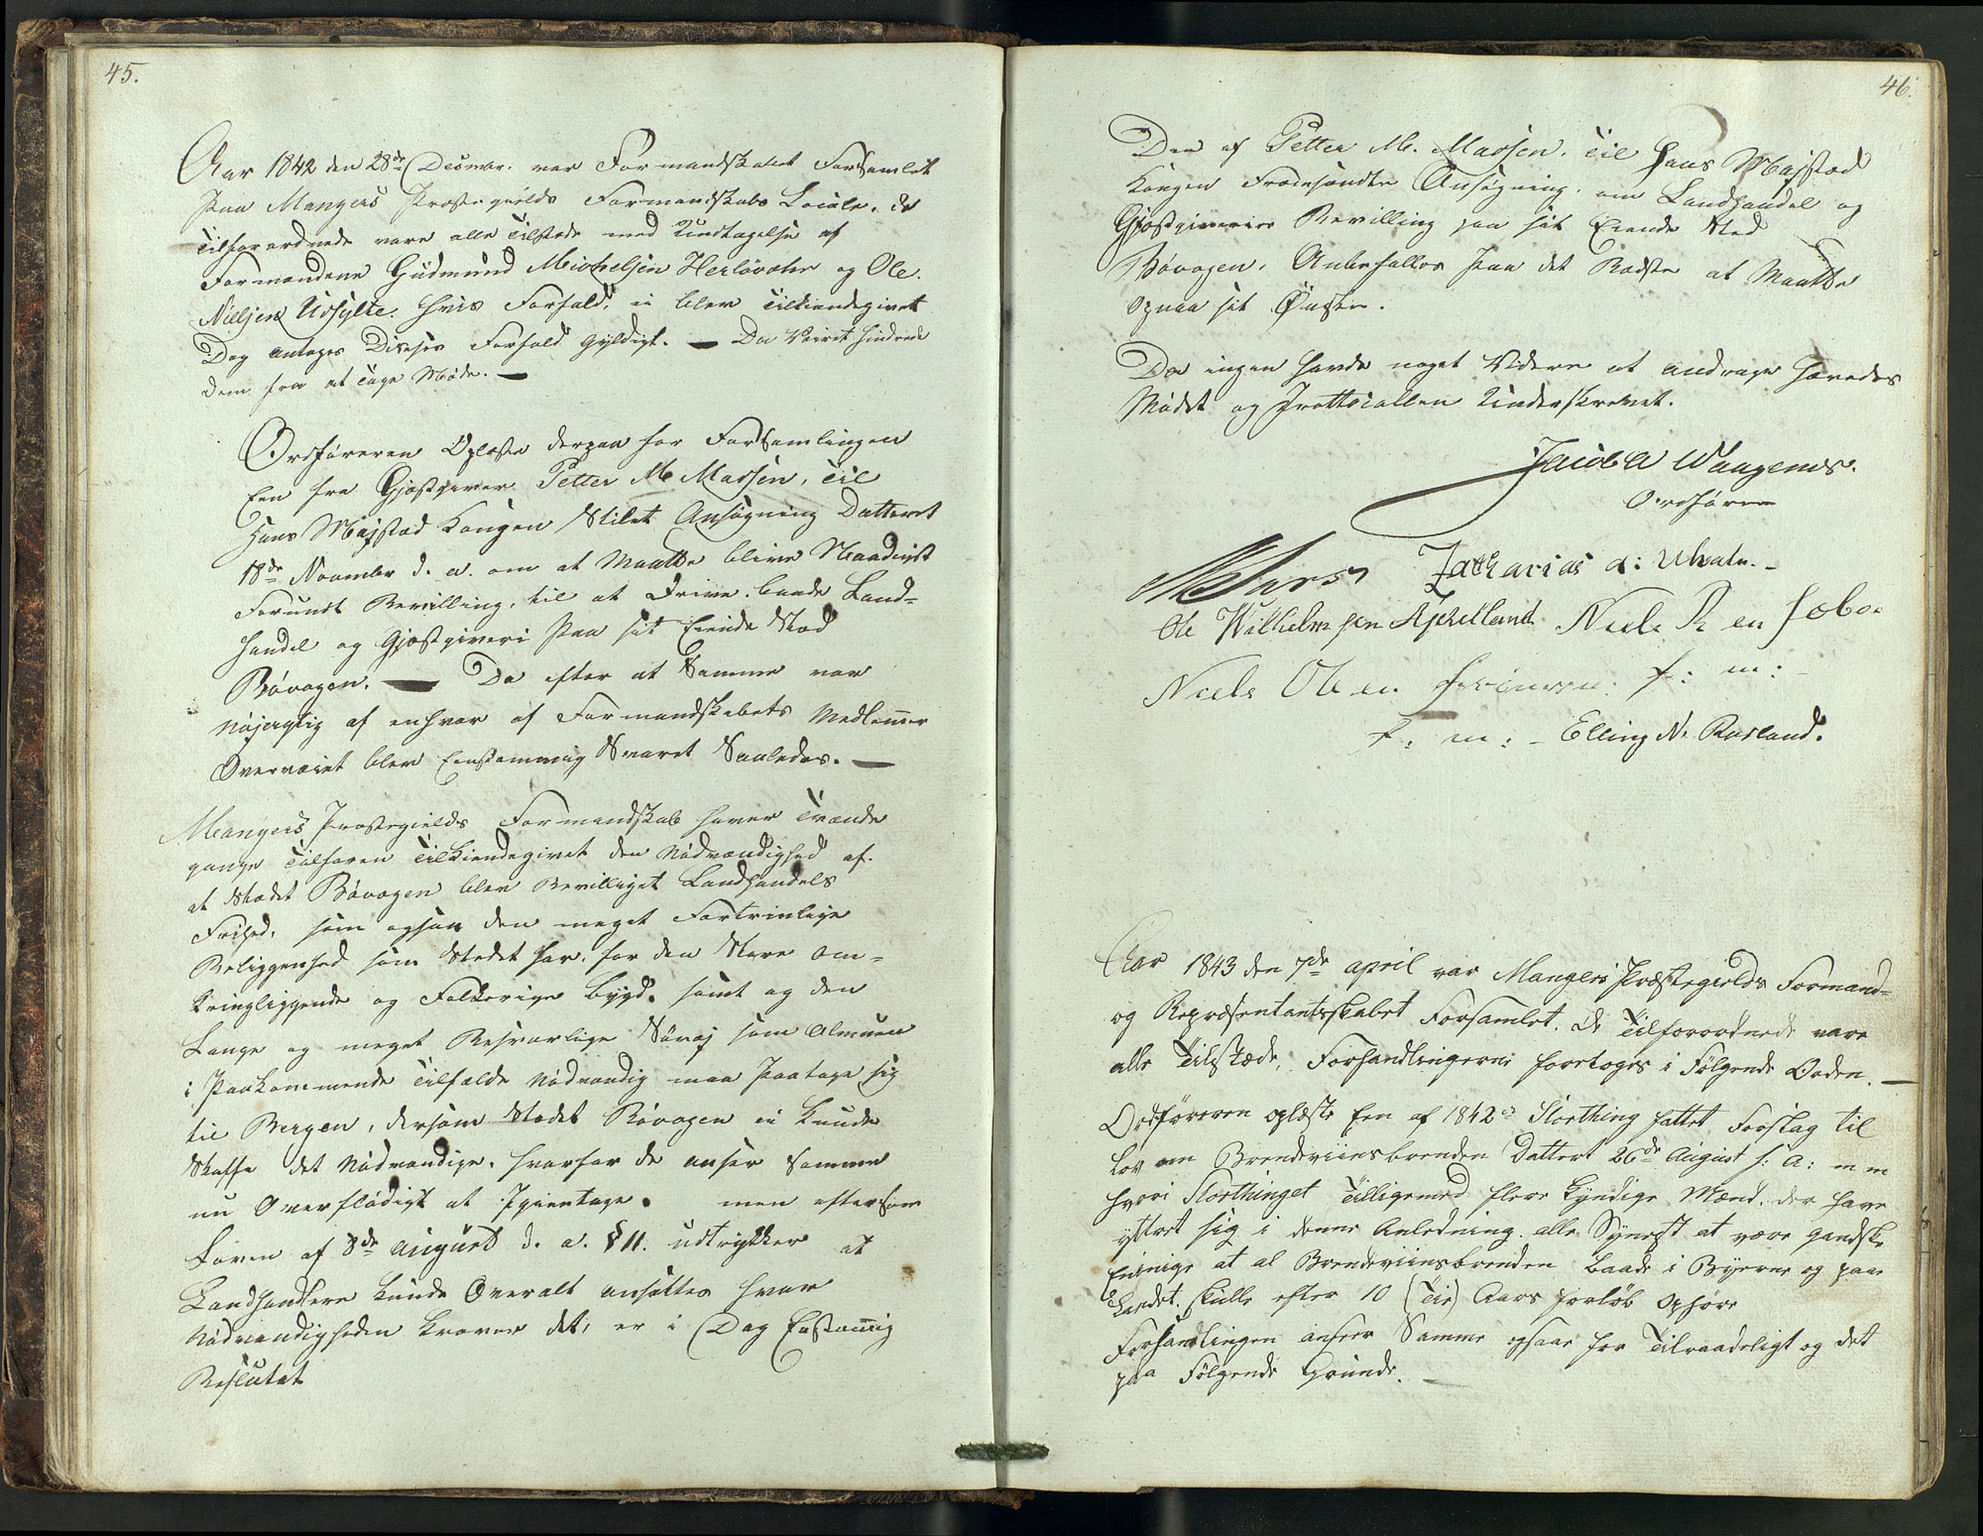 45.
Aar 1842 den 28de Decmbr. var Formandskabet Forsamlet
paa Mangers Prestegields Formandskabs Locale. de
Tilforordnede vare alle Tilstede med Undtagelse af
Formændene Gudmund Michelsen Herløvær og Ole
Nielsen Udsylte. hvis Forfald ei blev Tilkiendegivet
Dog antages Disses Forfald gyldigt. — Da Veiret hindrede
dem fra at Tage Møde. —
Ordføreren Oplæste derpaa for Forsamlingen
Een fra Gjæstgiver Petter M Madsen, Til
Hans Majstæd Kongen Stilet Ansøgning Datteret
18de Novembr d. a. om at Maatte blive Naadigst
Forundt Bevilling, til at Drive baade Land-
handel og Gjæstgiveri paa sit Eiende Stæd
Bøvagen. — Da efter at Samme var
nøjagtig af enhver af Formandskabets Medlemer
Overveiet blev Eenstemmig Svaret Saaledes. —
Mangers Prestegields Formandskab haver Tvende
gange Tilforen Tilkiendegivet den Nødvendighed af
at Stædet Bøvagen blev Bevilliget Landhandels
Frihed, som ogsaa den meget Fortrinlige
Beliggenhed som Stedet har, for den Store om-
kringliggende og Folkerige bygd, samt og den
Lange og meget Besværlige Søvej som Almuen
i Paakommende Tilfælde Nødvendig maa Paatage sig
til Bergen, dersom Stædet Bøvagen ei kunde
Skaffe det Nødvendige, hvorfor de anser Samme
nu Overflødigt at Igientage. men eftersom
Loven af 8de August d. a. § 11. udtrykker at
Landhandlere kunde Overalt ansættes hvor
Nødvendigheden kræver det, er i Dag Enstemig
Besluttet
46.
Den af Petter M. Madsen. Til Hans Majstæd
Kongen Fremsendte Ansøgning, om Landhandel og
Gjæstgiveries Bevilling paa sit Eiende Sted
Bøvagen, Anbefalles paa det Bedste at Maatte
opnaa sit Ønske.
Da ingen havde noget Videre at andrage hævedes
Mødet og Prottocallen Underskrevet.
Jacob A Waagenes.
Ordfører
Zacharias A: Uhatn.
Ole Wilhelmsen Kjelland Niels R en Sæbø
Niels Olsen f: m:
f: m: - Elling N. Rosland.
Aar 1843 den 7de april var Mangers Præstegields Formand-
og Repræsentantskabet Forsamlet. De Tilforordnede vare
alle Tilstæde, Forhandlingerne foretoges i Følgende Orden. —
Ordføreren oplæste Een af 1842 Storthing fattet Forslag til
Lov om Brendeviinsbrenden Dattert 26de August f: A: m m
hvori Storthinget Tilligemed flere kyndige Mænd, der have
yttret sig i denne Anledning, alle Synest at være gandske
Eninge at al Brendeviinsbrenden baade i Byerne og paa
Landet, skulle efter 10 (Tie) Aars forløb Ophøre
Forsamlingen anseer Samme ogsaa for Tilraadeligt og det
paa Følgende Grunde. —